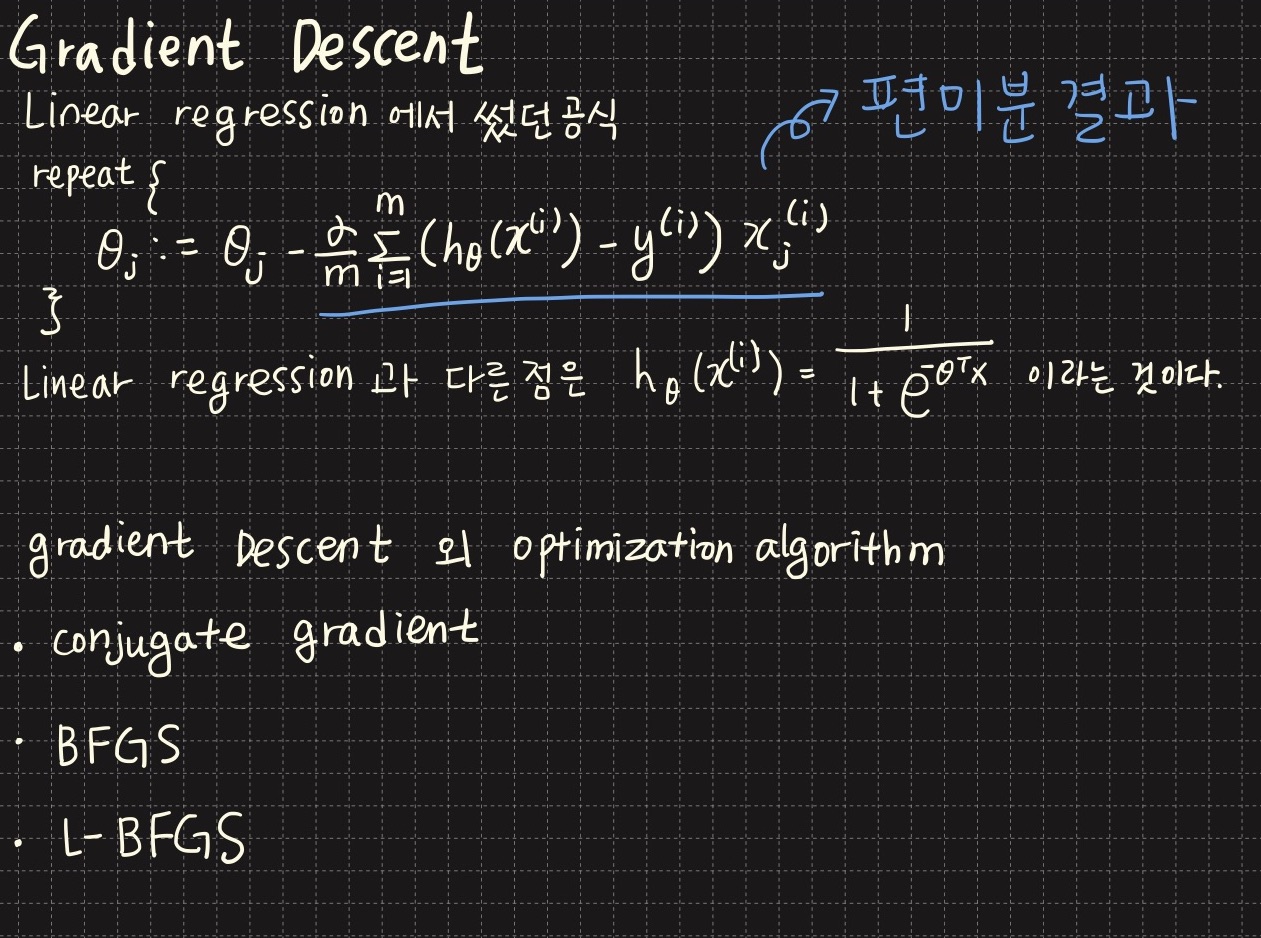 Gradient Descent
Linear regression 에서 썼던 공식
편미분 결과
repeat {
θ_j := θ_j - α/m Σ_{i=1}^{m} (h_θ(x^{(i)}) - y^{(i)}) x_j^{(i)}
}
Linear regression 과 다른 점은 h_θ(x^{(i)}) = 1/(1 + e^{-θ^T x}) 이라는 것이다.
gradient Descent 외 optimization algorithm
· conjugate gradient
· BFGS
· L-BFGS